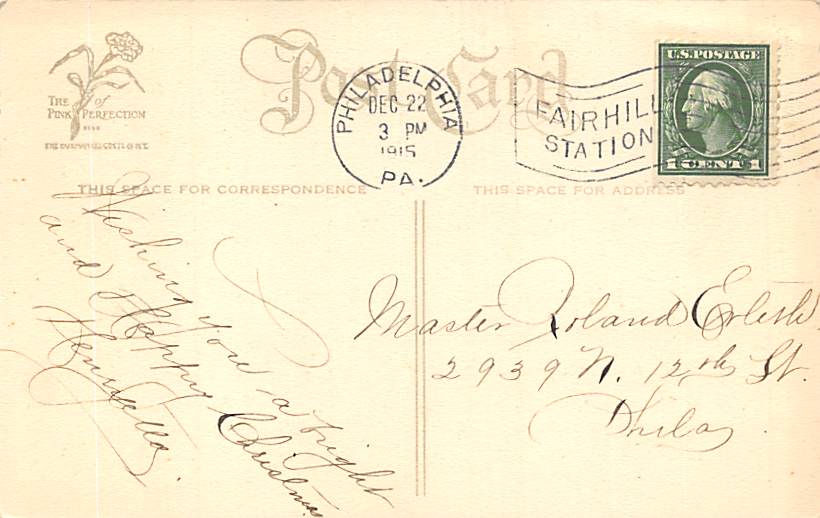 Post Card
THE of
PINK PERFECTION
U.S. POSTAGE
1 CENT 1
PHILADELPHIA
DEC 22
3 PM
1915
PA.
FAIRHILL
STATION
THIS SPACE FOR CORRESPONDENCE
THIS SPACE FOR ADDRESS
Wishing you a bright
and Happy Christmas
Henrietta.
Master Roland
2939 N. 12th St.
Phila